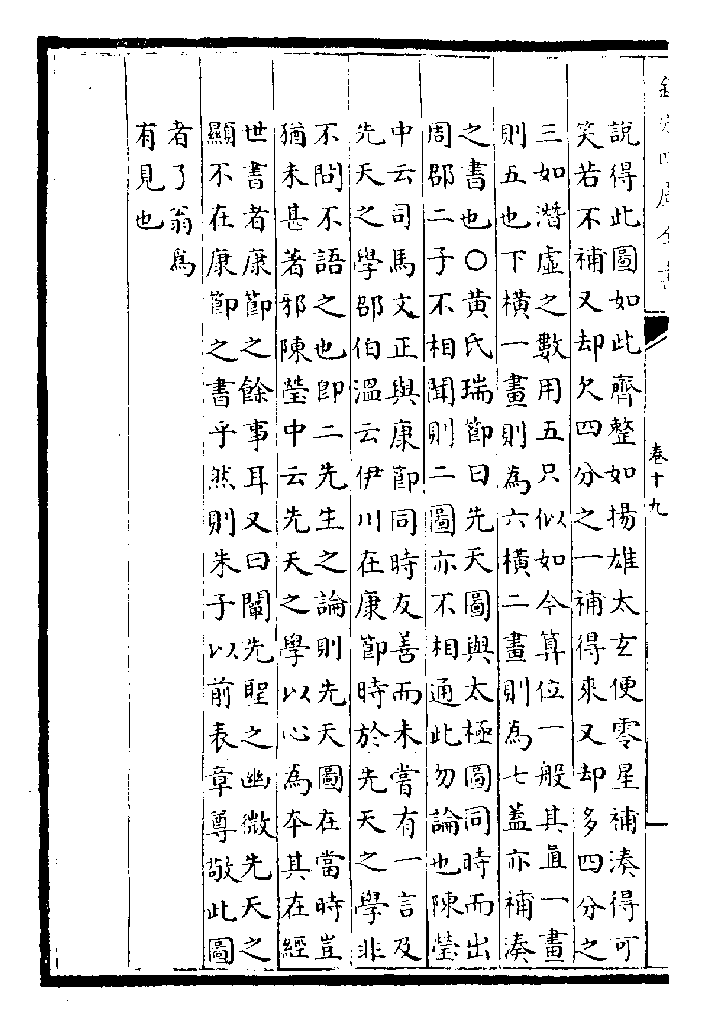 欽定四庫全書
卷十九
說得此圖如此齊整如揚雄太玄便零星補湊得可
笑若不補又却欠四分之一補得來又却多四分之
三如潛虛之數用五只似如今算位一般其直一畫
則五也下橫一畫則為六橫二畫則為七蓋亦補湊
之書也○黃氏瑞節曰先天圖與太極圖同時而出
周邵二子不相聞則二圖亦不相通此勿論也陳瑩
中云司馬文正與康節同時友善而未嘗有一言及
先天之學邵伯溫云伊川在康節時於先天之學非
不問不語之也即二先生之論則先天圖在當時豈
猶未甚著邪陳瑩中云先天之學以心為本其在經
世書者康節之餘事耳又曰闡先聖之幽微先天之
顯不在康節之書乎然則朱子以前表章尊敬此圖
者了翁為
有見也